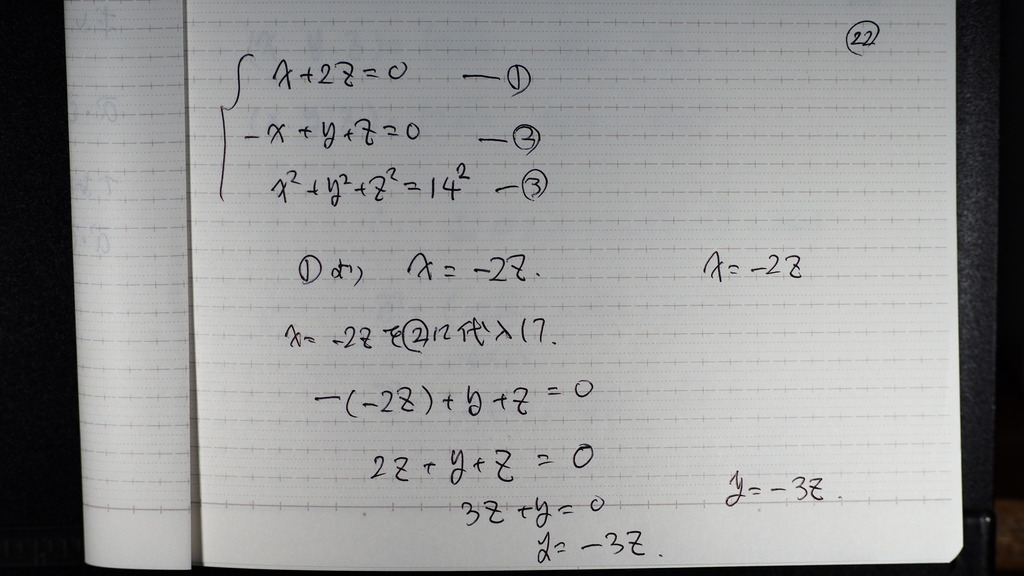 22
x+2z=0 —①
-x+y+z=0 —②
x²+y²+z²=14² —③
①より x=-2z. x=-2z
x=-2zを②に代入して.
-(-2z)+y+z=0
2z+y+z=0
y=-3z.
3z+y=0
y=-3z.